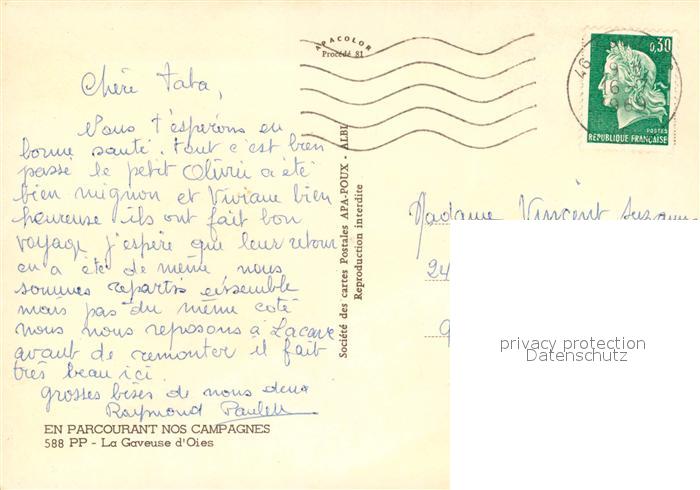 APACOLOR
Procédé 81
0,30
POSTES
REPUBLIQUE FRANÇAISE
46
16
Chère Tata,
Nous t'espérons en
bonne santé. tout c'est bien
passé le petit Olivier a été
bien mignon et Viviane bien
heureuse ils ont fait bon
voyage j'espère que leur retour
en a été de même, nous
sommes repartis ensemble
mais pas du même coté
nous nous reposons à Lacave
avant de remonter il fait
très beau ici.
grosses bises de nous deux
Raymond Paulette
Société des cartes Postales APA-POUX - ALBI
Reproduction interdite
Madame Vincent Suzanne
24
9
privacy protection
Datenschutz
EN PARCOURANT NOS CAMPAGNES
588 PP - La Gaveuse d'Oies